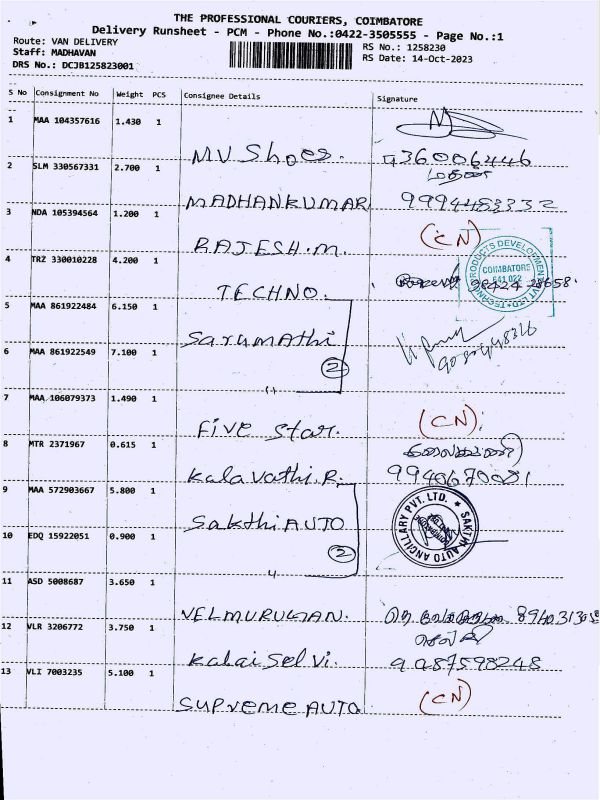 THE PROFESSIONAL COURIERS, COIMBATORE
Delivery Runsheet - PCM - Phone No.:0422-3505555 - Page No.:1
Route: VAN DELIVERY RS No.: 1258230
Staff: MADHAVAN RS Date: 14-Oct-2023
DRS No.: DCJB125823001
S No Consignment No Weight PCS Consignee Details Signature
1 MAA 104357616 1.430 1
MV Shoes. 9360006446
2 SLM 330567331 2.700 1 மதன்
MADHANKUMAR 9994453332
3 NDA 105394564 1.200 1
RAJESH.M. (CN)
4 TRZ 330010228 4.200 1
TECHNO.
PRODUCTS DEVELOPMENT
COIMBATORE
641 022
5 MAA 861922484 6.150 1
Sarumathi
6 MAA 861922549 7.100 1 2
"
7 MAA 106079373 1.490 1
Five Star. (CN).
8 MTR 2371967 0.615 1
Kalavathi.R. 9940670001
9 MAA 572903667 5.800 1
Sakthi AUTO
SAKTHI AUTO ANCILLARY PVT. LTD.
10 EDQ 15922051 0.900 1 2
"
11 ASD 5008687 3.650 1
VELMURUGAN.
12 VLR 3206772 3.750 1
Kalai Selvi. 9987598248
13 VLI 7003235 5.100 1
SUPREME AUTO (CN)